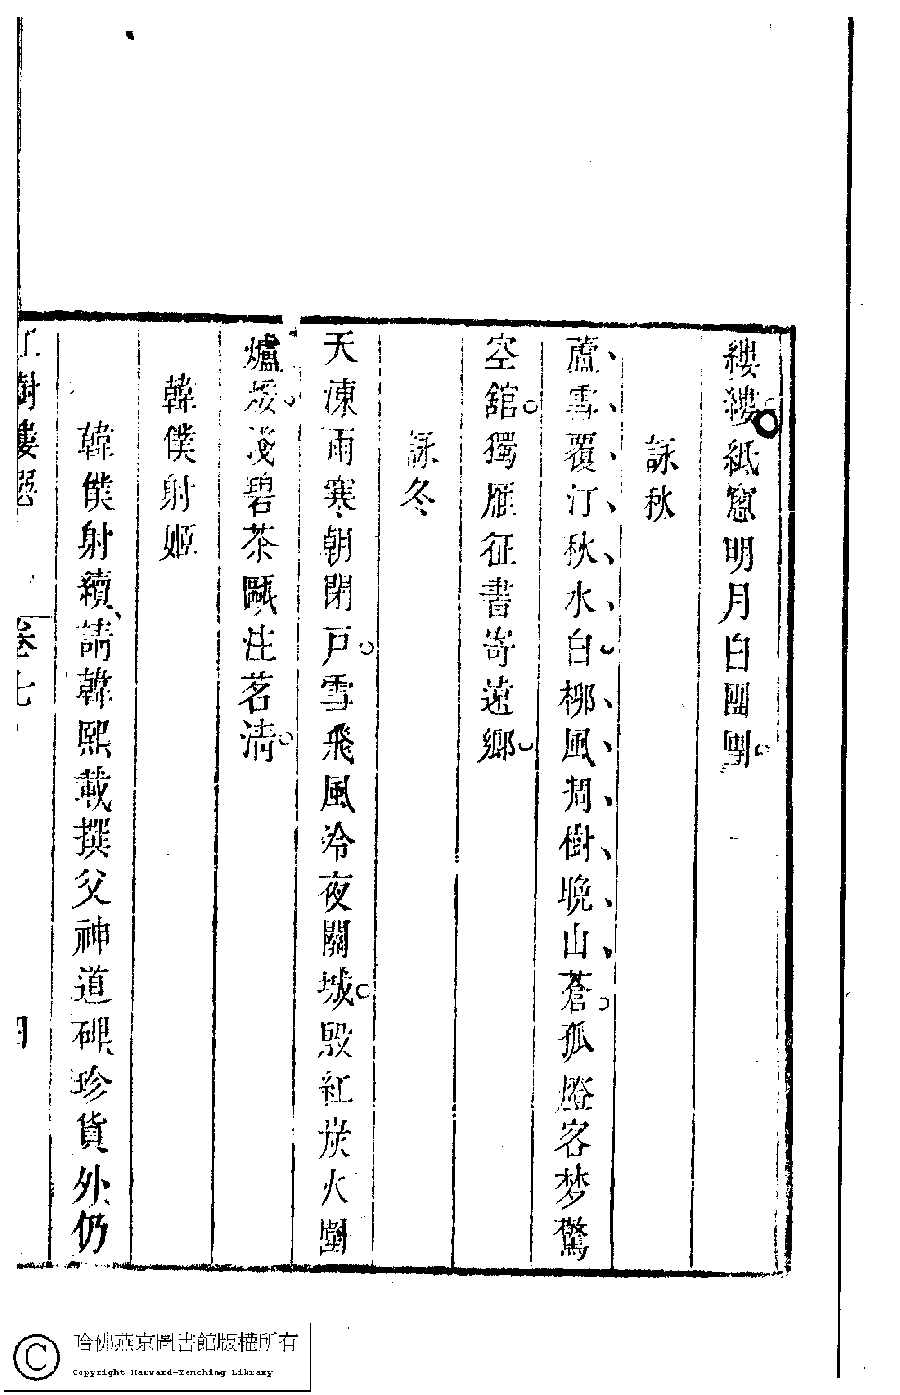 縷縷紙窻明月白團團
詠秋
蘆雪覆汀秋水白柳風凋樹晩山蒼孤燈客梦驚
空舘獨雁征書寄遠鄉
詠冬
天凍雨寒朝閉戸雪飛風冷夜關城殷紅炭火圍
爐煖淺碧茶甌注茗清
韓僕射姬
韓僕射續請韓熙載撰父神道碑珍貨外仍
紅樹樓選 卷七
哈佛燕京圖書館版權所有
Copyright Harvard-Yenching Library